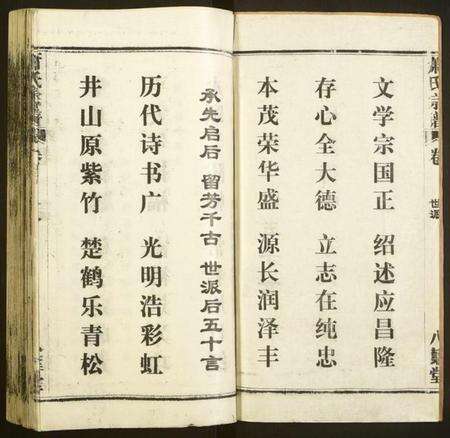 氏宗譜 卷 世派
文学宗国正 绍述应昌隆
存心全大德 立志在纯忠
本茂荣华盛 源长润泽丰
承先启后 留芳千古 世派后五十言
历代诗书广 光明浩彩虹
井山原紫竹 楚鹤乐青松